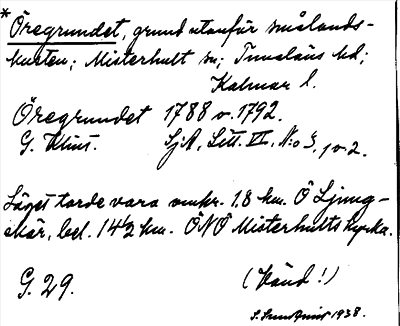 * Öregrundet, grund utanför smålands-
kusten; Misterhult sn; Tunaläns hd;
Kalmar l.
Öregrundet 1788 o. 1792.
G. Klint. SjA, Litt. VI, N:o 3, 1 o. 2.
Läget torde vara omkr. 18 km. Ö Ljung-
skär, bel. 14½ km. ÖNÖ Misterhults kyrka.
G. 29. (Vänd!)
1938.